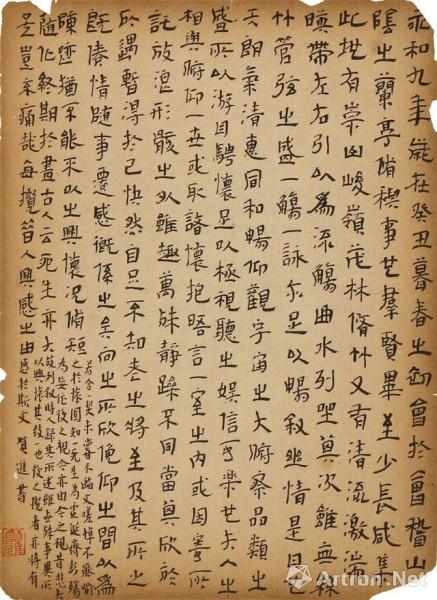 永和九年歲在癸丑暮春之初會於會稽山
陰之蘭亭脩稧事也羣賢畢至少長咸集
此地有崇山峻嶺茂林脩竹又有清流激湍
暎帶左右引以為流觴曲水列坐其次雖無絲
竹管弦之盛一觴一詠亦足以暢敘幽情是日也
天朗氣清惠風和暢仰觀宇宙之大俯察品類之
盛所以游目騁懷足以極視聽之娛信可樂也夫人之
相與俯仰一世或取諸懷抱晤言一室之內或因寄所
託放浪形骸之外雖趣萬殊靜躁不同當其欣於
所遇暫得於己快然自足不知老之將至及其所之
既倦情隨事遷感慨係之矣向之所欣俛仰之間以為
陳迹猶不能不以之興懷況脩短
隨化終期於盡古人云死生亦大
矣豈不痛哉每攬昔人興感之由
若合一契未嘗不臨文嗟悼不能喻
之於懷固知一死生為虛誕齊彭殤
為妄作後之視今亦由今之視昔悲夫
故列敘時人錄其所述雖世殊事異所
以興懷其致一也後之攬者亦將有
感於斯文 進書
Artron.Net